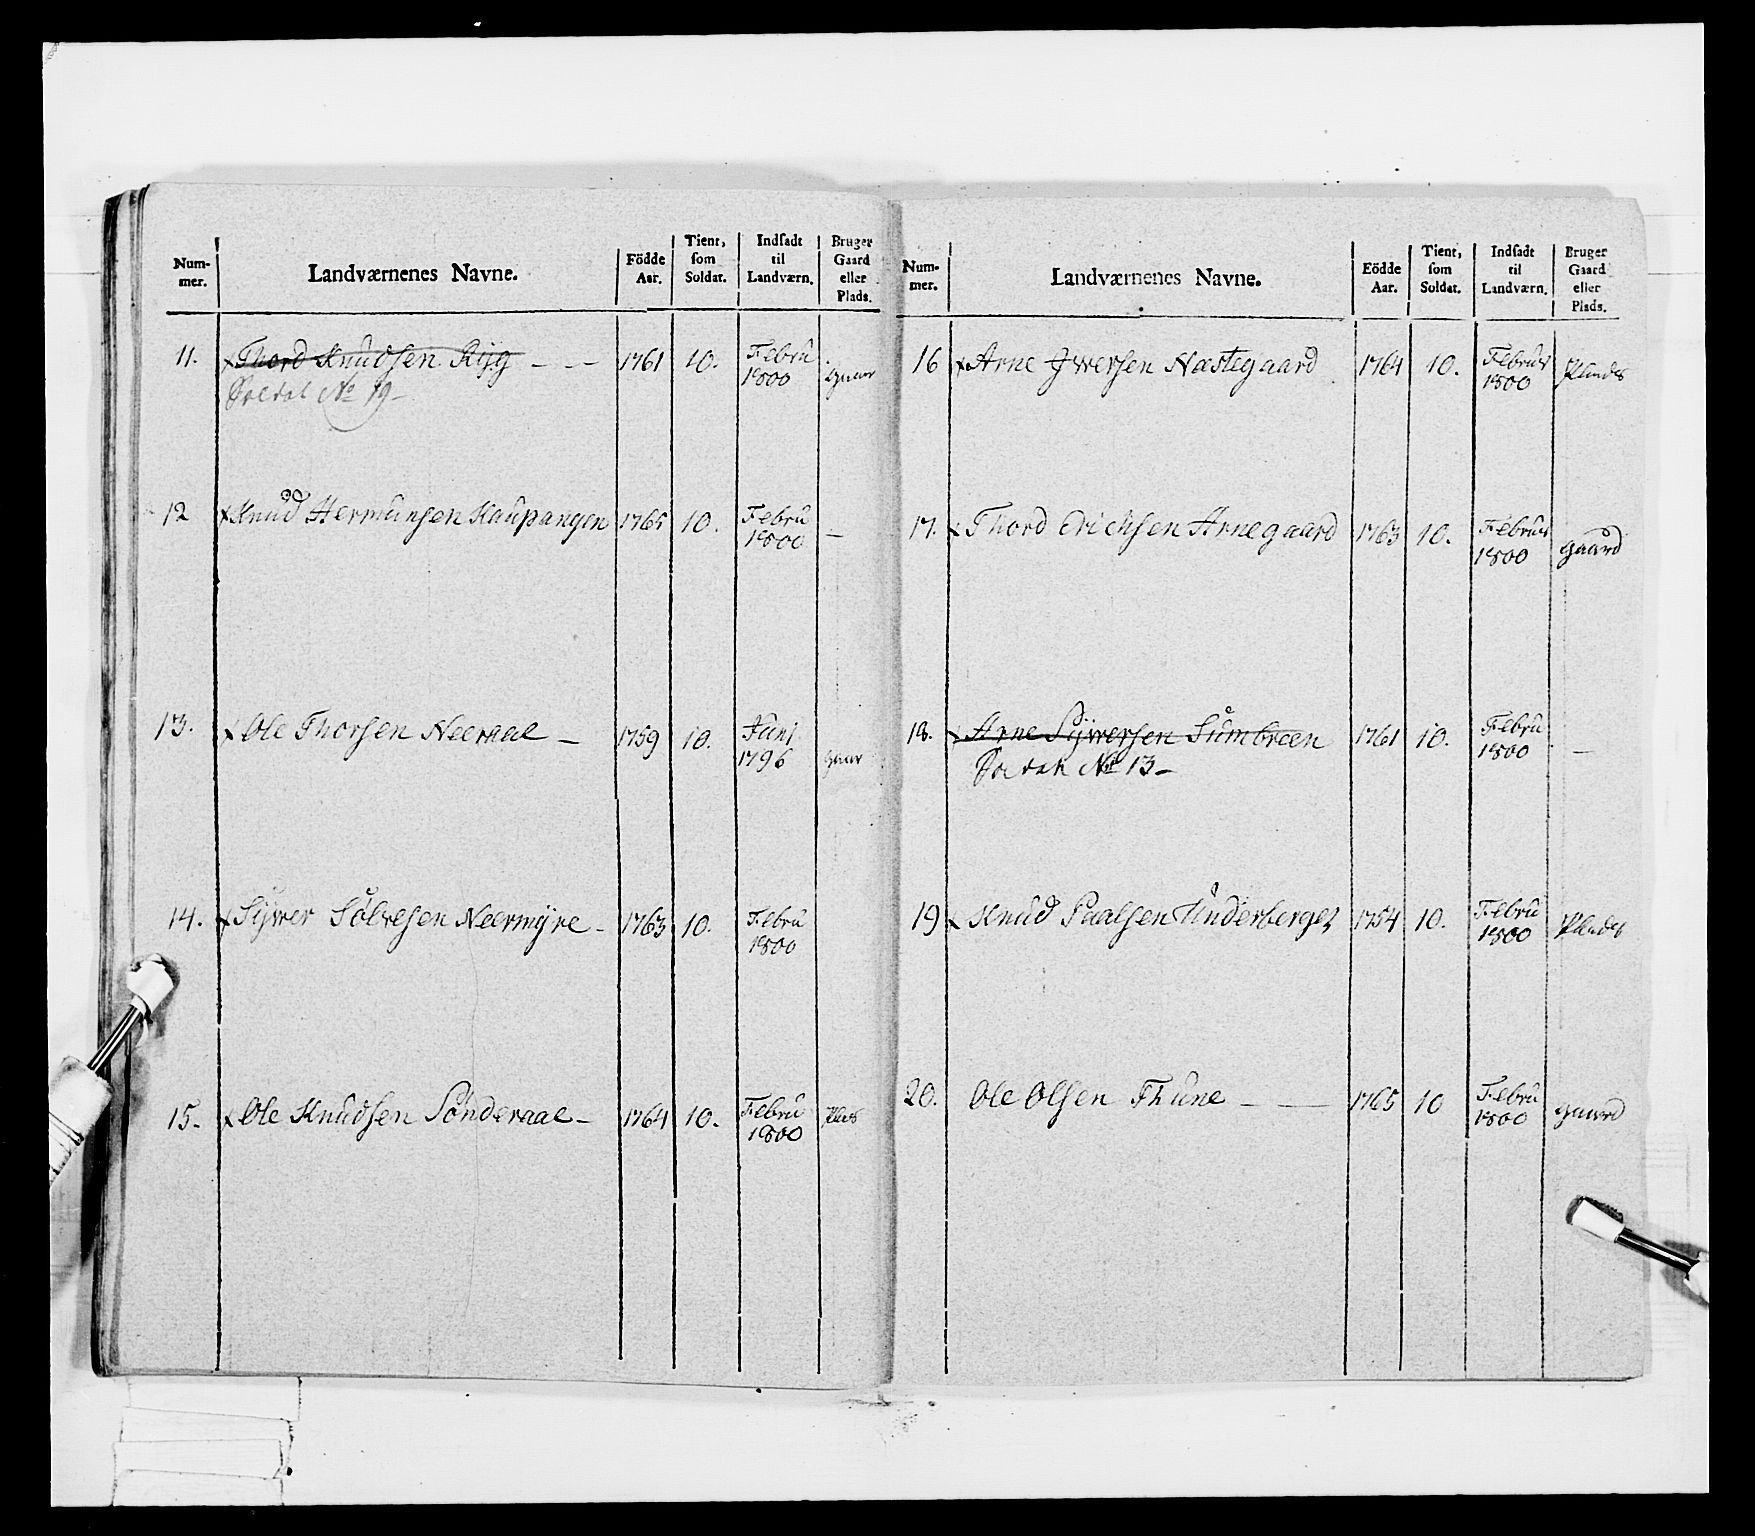 Num-
mer.
Landværnenes Navne.
Födde
Aar.
Tient,
som
Soldat.
Indsadt
til
Landværn.
Bruger
Gaard
eller
Plads.
11. Thord Knudsen Ryg — — 1761 10. Febru 1800 gaar
Soldat No 19 —
12 Knud Hermunsen Kaupangen 1765 10. Febru 1800 —
13. Ole Thorsen Neeraal — 1759 10. Juni 1796 gaar
14. Sÿwer Sölvesen Neermÿre — 1763 10. Febru 1800
15. Ole Knudsen Sönderaal — 1764 10. Febru 1800 Plads
Num-
mer.
Landværnenes Navne.
Eödde
Aar.
Tient,
som
Soldat.
Indsadt
til
Landværn.
Bruger
Gaard
eller
Plads.
16 Arne Iwersen Næstegaard 1764 10. Februr 1800 Plandes
17. Thord Erichsen Arnegaard 1763 10. Februr 1800 gaard
18. Arne Sÿwersen Sumbreen 1761 10. Febru 1800 —
Soldat No 13 —
19 Knud Paalsen Underberget 1754 10. Febru 1800 Plandes
20. Ole Olsen Thune — — 1765 10 Febru 1800 gaard